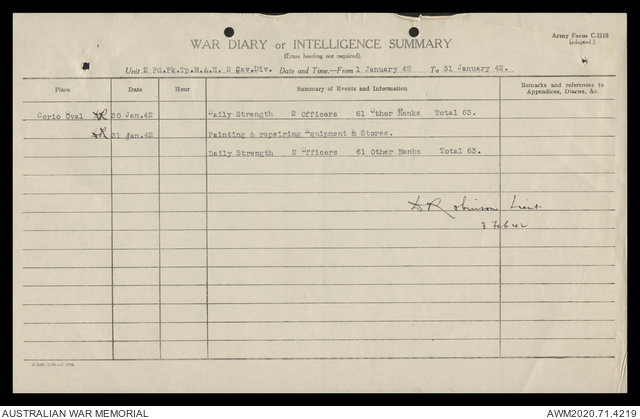 Army Form C.2118
(adapted.)
WAR DIARY or INTELLIGENCE SUMMARY
(Erase heading not required).
Unit 2 Fd.Pk.Tp.R.A.E. 2 Cav.Div. Date and Time.—From 1 January 42 To 31 January 42.
Place Date Hour Summary of Events and Information Remarks and references to Appendices, Diaries, &c.
Corio Oval DR 30 Jan.42 Daily Strength 2 Officers 61 Other Ranks Total 63.
DR 31 Jan.42 Painting & repairing Equipment & Stores.
Daily Strength 2 Officers 61 Other Ranks Total 63.
DRobinson Lieut
3 Feb 42
AUSTRALIAN WAR MEMORIAL AWM2020.71.4219